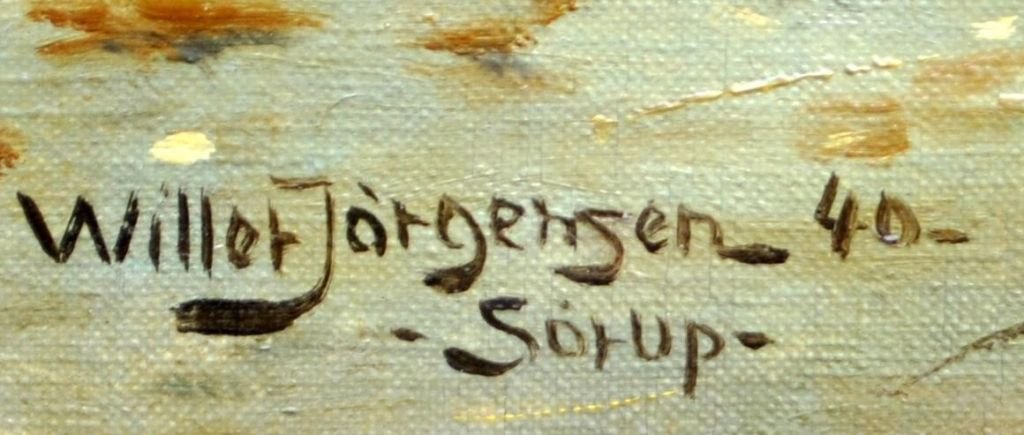 Willer Jórgensen 40-
- Sórup -